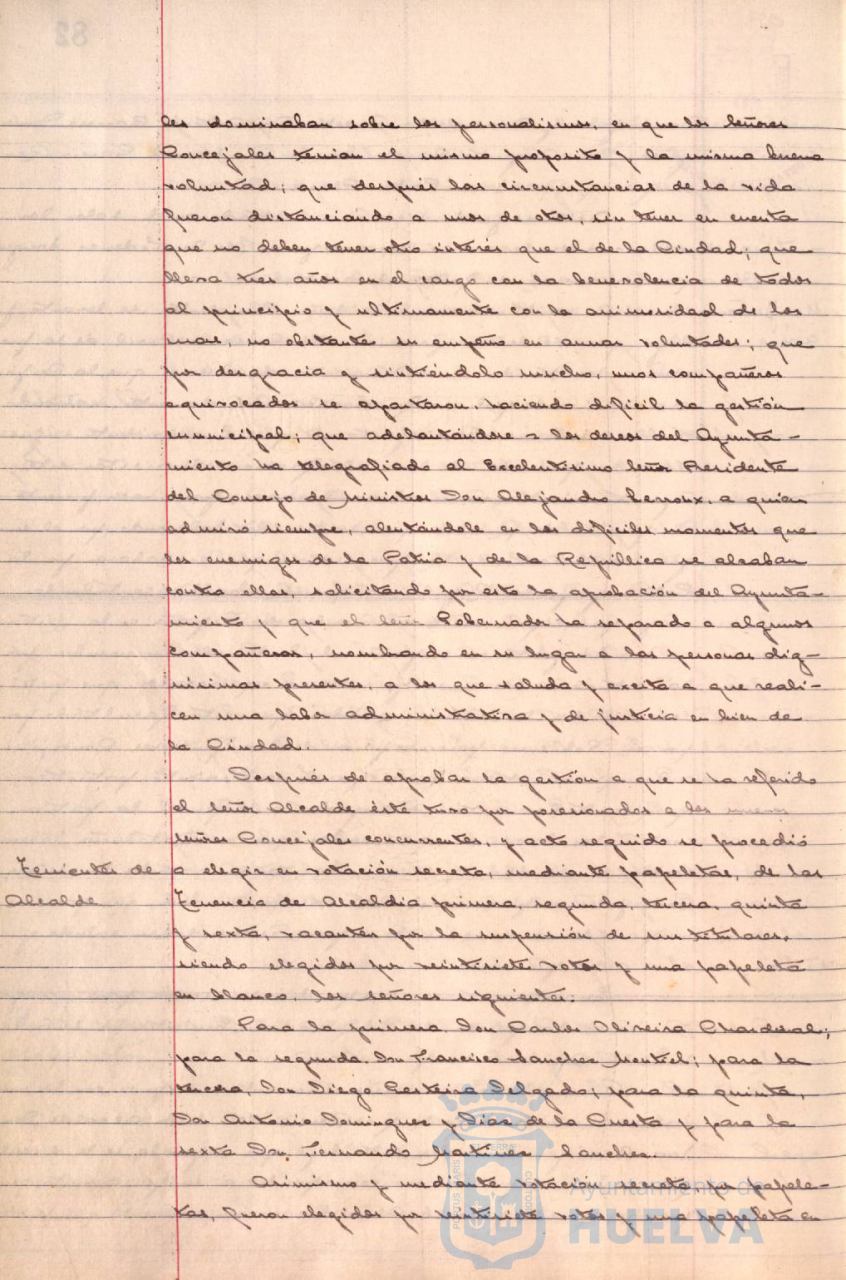 les dominaban sobre los personalismos, en que los Señores
Concejales tenian el mismo proposito y la misma buena
voluntad; que después las circunstancias de la vida
fueron distanciando a unos de otros, sin tener en cuenta
que no deben tener otro interés que el de la Ciudad; que
lleva tres años en el cargo con la benevolencia de todos
al principio y ultimamente con la animosidad de los
mas, no obstante su empeño en aunar voluntades; que
por desgracia y sintiéndolo mucho, unos compañeros
equivocados se apartaron, haciendo dificil la gestión
municipal; que adelantándose a los deseos del Ayunta-
miento ha telegrafiado al Excelentisimo Señor Presidente
del Consejo de Ministros Don Alejandro Lerroux, a quien
admiró siempre, alentándole en los dificiles momentos que
los enemigos de la Patria y de la República se alzaban
contra ellas, solicitando por esto la aprobación del Ayunta-
miento y que el señor Gobernador ha separado a algunos
compañeros, nombrando en su lugar a las personas dig-
nisimas presentes, a los que saluda y excita a que reali-
cen una labor administrativa y de justicia en bien de
la Ciudad.
Después de aprobar la gestión a que se ha referido
el señor Alcalde éste tuvo por posesionados a los nuevos
señores Concejales concurrentes, y acto seguido se procedió
Tenientes de
Alcalde
a elegir en votación secreta, mediante papeletas, de las
Tenencia de Alcaldia primera, segunda, tercera, quinta
y sexta, vacantes por la suspensión de sus titulares,
siendo elegidos por veintisiete votos y una papeleta
en blanco, los señores siguientes:
Para la primera Don Carlos Oliveira Chardenal;
para la segunda, Don Francisco Sanchez Montiel; para la
tercera, Don Diego Delgado; para la quinta,
Don Antonio Dominguez y Diaz de la Cuesta y para la
sexta Don Fernando Martinez Sanchez.
Asimismo y mediante votación secreta, por papele-
tas, fueron elegidos por veintisiete votos y una papeleta en
Ayuntamiento de
HUELVA